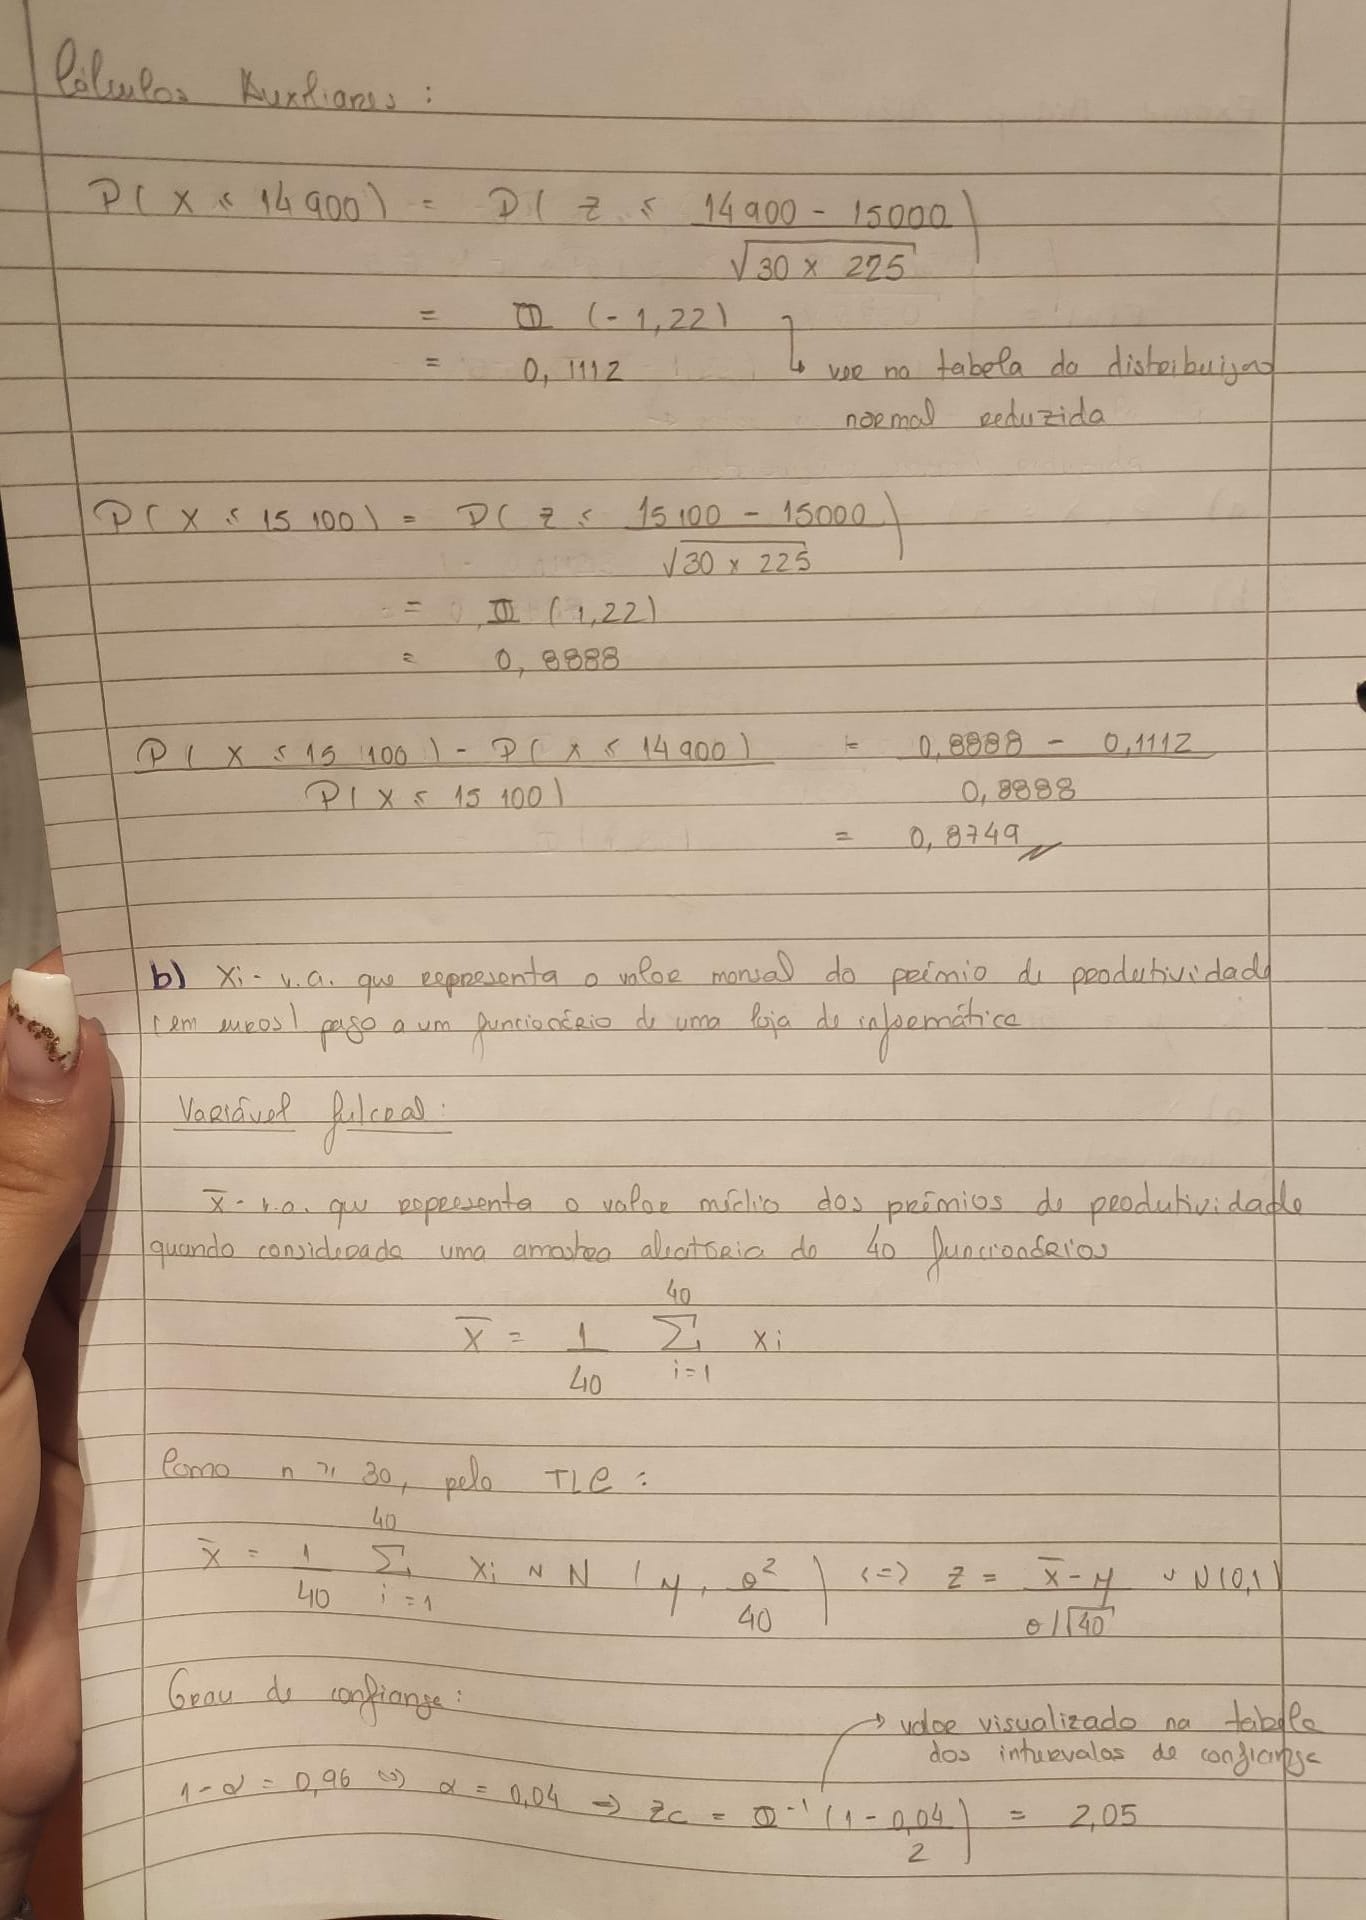 Cálculos Auxiliares:
P(X ≤ 14 900) = P( Z ≤ 14 900 - 15000 )
√30 × 225
= Φ (-1,22)
= 0,1112 ↳ ver na tabela da distribuição
normal reduzida
P(X ≤ 15 100) = P( Z ≤ 15 100 - 15000 )
√30 × 225
= Φ (1,22)
= 0,8888
P( X ≤ 15 100) - P( X ≤ 14 900) = 0,8888 - 0,1112
P( X ≤ 15 100) 0,8888
= 0,8749
b) Xi - v.a. que representa o valor mensal do prémio de produtividade
(em euros) pago a um funcionário de uma loja de informática
Variável fulcral:
X̄ - v.a. que representa o valor médio dos prémios de produtividade
quando considerada uma amostra aleatória de 40 funcionários
40
X̄ = 1 Σ Xi
40 i=1
Como n ≥ 30, pelo TLC:
40
X̄ = 1 Σ Xi ~ N ( μ, σ² ) (=) Z = X̄ - μ ~ N(0,1)
40 i=1 40 σ/√40
Grau de confiança:
→ valor visualizado na tabela
dos intervalos de confiança
1-α = 0,96 (=) α = 0,04 => Zc = Φ⁻¹ (1 - 0,04 ) = 2,05
2